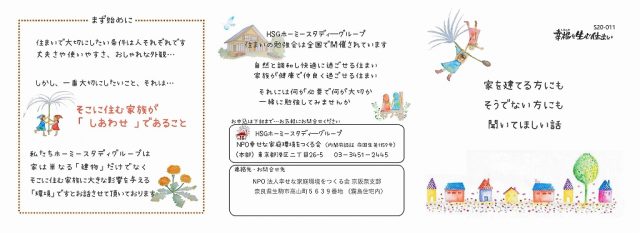 まず始めに
住まいで大切にしたい条件は人それぞれです
丈夫さや使いやすさ、おしゃれな外観…
しかし、一番大切にしたいこと、それは…
そこに住む家族が
「しあわせ」であること
私たちホーミースタディグループは
家は単なる「建物」だけでなく
そこに住む家族に大きな影響を与える
「環境」ですとお話させて頂いております
HSGホーミースタディーグループ
住まいの勉強会は全国で開催されています
自然と調和し快適に過ごせる住まい
家族が健康で仲良く過ごせる住まい
それには何が必要で何が大切か
一緒に勉強してみませんか
お申込は下記まで…お気軽にお問合せください
HSGホーミースタディーグループ
NPO幸せな家庭環境をつくる会
(本部) 東京都港区二丁目26-5 03-3451-2445
連絡先・お問合せ先
NPO 法人幸せな家庭環境をつくる会 京阪奈支部
奈良県生駒市高山町5639番地 (霧島住宅内)
S20-011
幸福を生む住まい
家を建てる方にも
そうでない方にも
聞いてほしい話